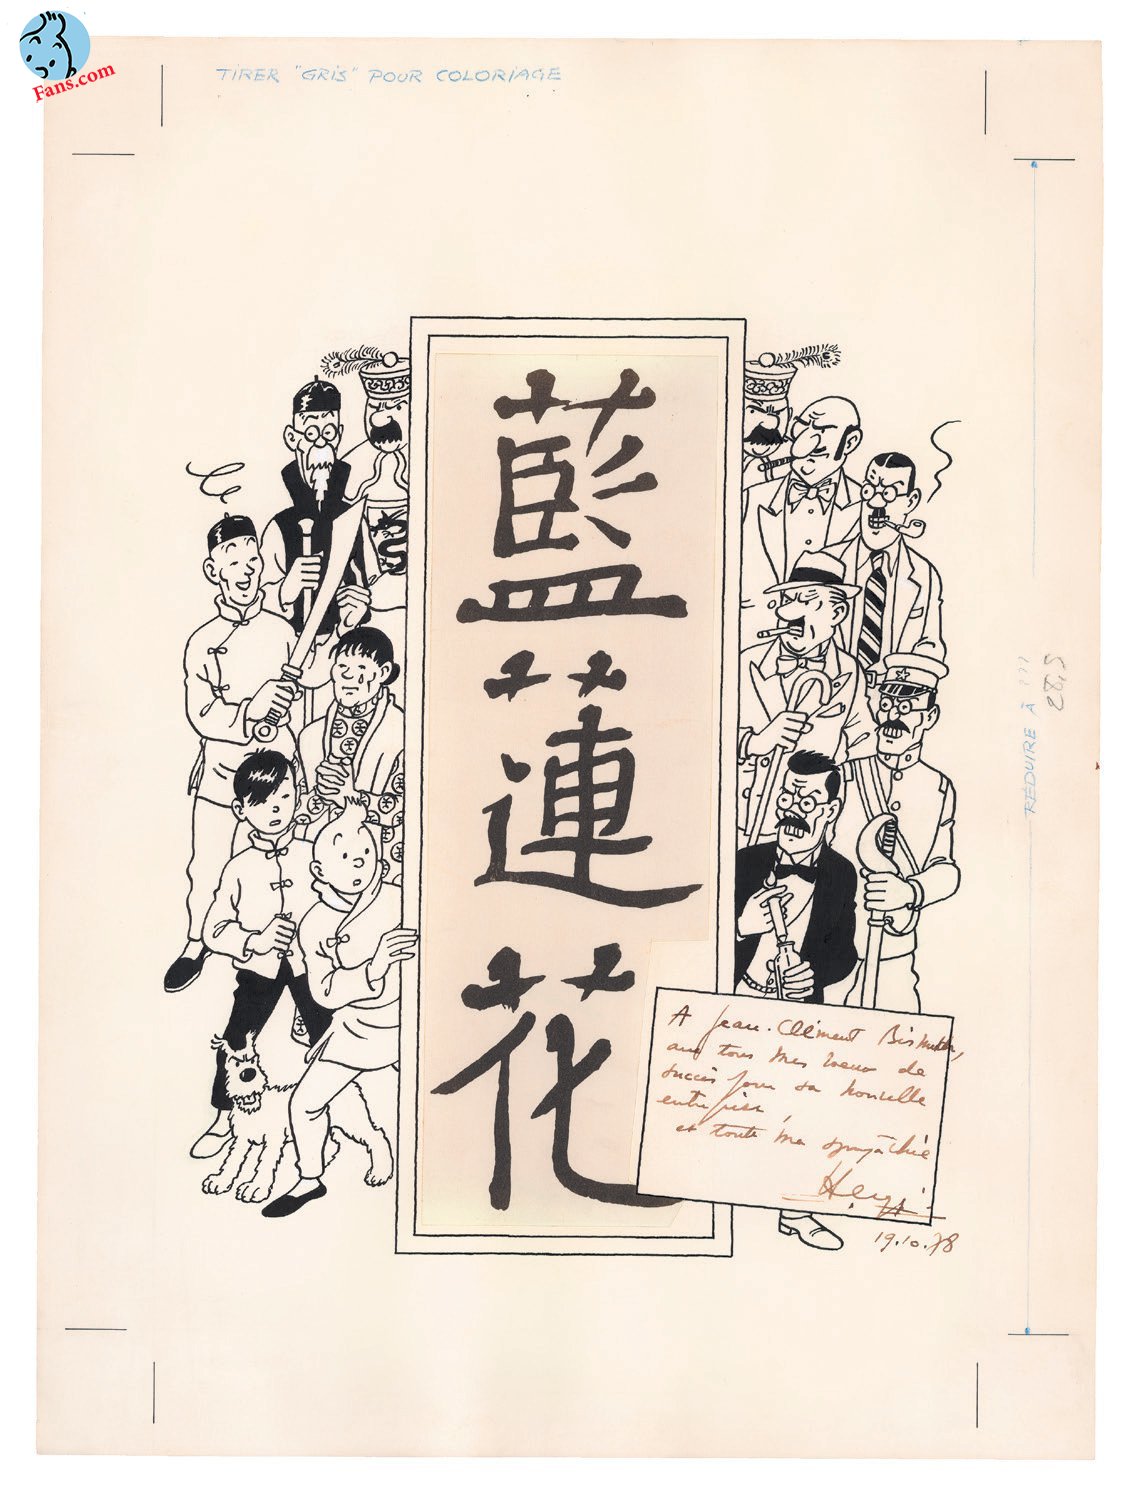 Fans.com
TIRER "GRIS" POUR COLORIAGE
藍
蓮
花
RÉDUIRE À ???
28,5
A Jean-Clément
avec tous mes voeux de
succès pour sa nouvelle
entreprise,
et toute ma sympathie
Hergé
19.10.78